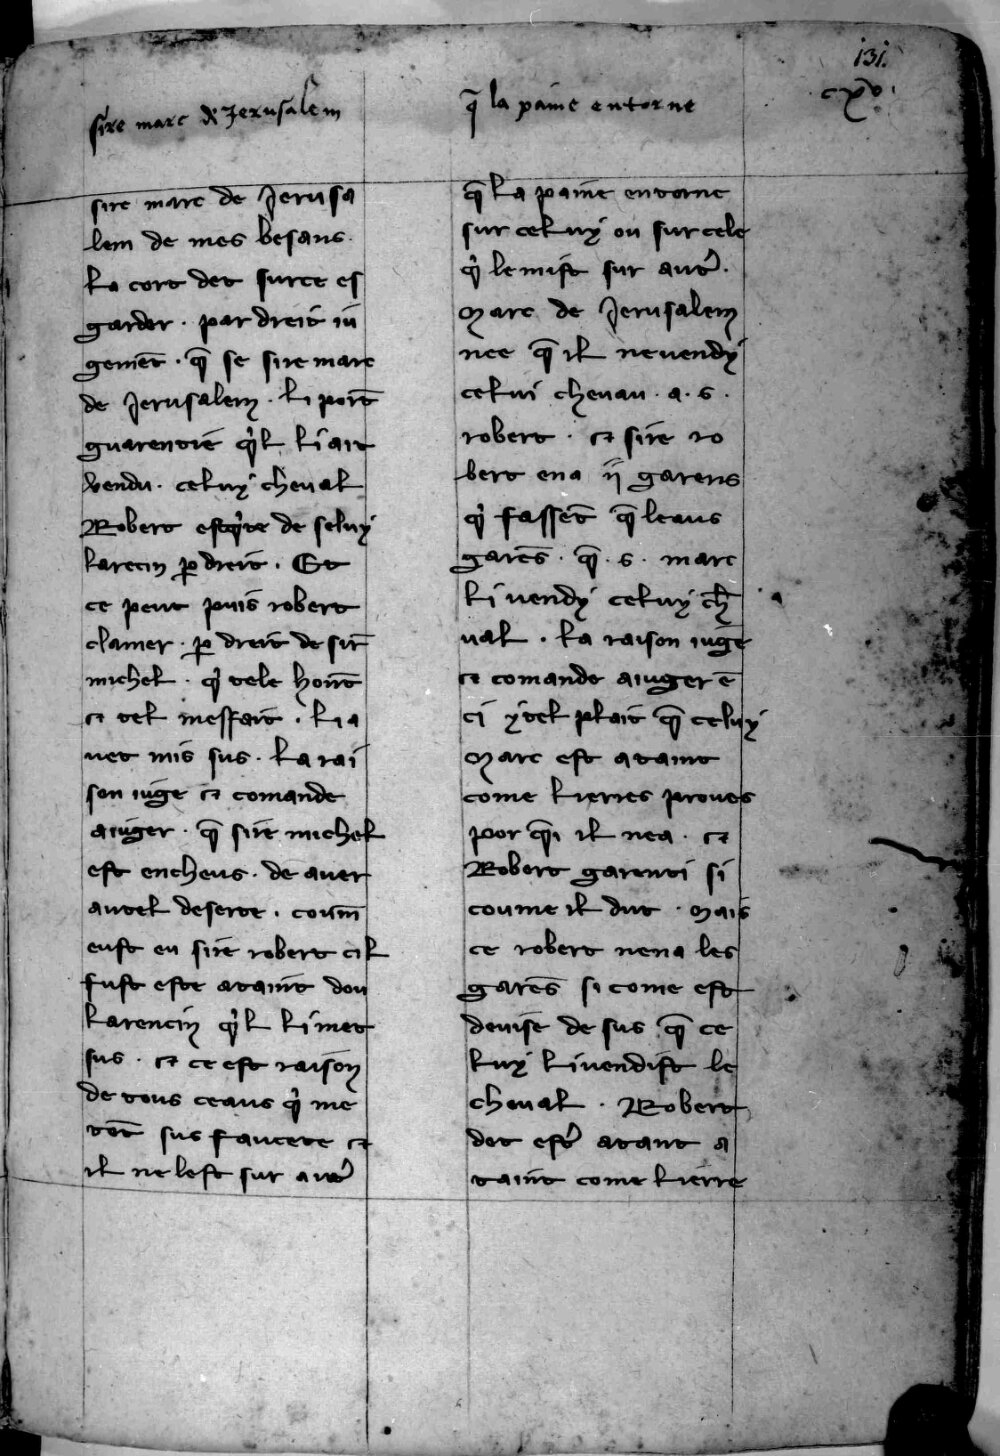 131.
cxv.
sire marc de Jerusalem
q̄ la paine entorne
sire marc de Jerusa
lem de mes besans.
La cort det surce es
garder . par dreit iu
gemēt . q̄ se sire marc
de Jerusalem . li port̄
guarentie q̓l li ait
vendu . celuy cheval
Robert est q̓te de seluy
larecin p̱ dreit . Et
ce peut puis robert
clamer . p̱ dreit de sir̄
michel . q̓ tele hont̄
⁊ tel meffait . li a
uet mis sus . La rai
son iuge ⁊ comande
aiuger . q̄ sire michel
est encheus . de aver
autel deserte . coum̄
eust eu sire robert cil
fust este ataint dou
larencin q̓l li met
sus . ⁊ ce est raison
de tous ceaus q̓ me
tēt sus faucete ⁊
il ne lest sur aut̓
q̄ la paine entorne
sur celuy ou sur cele
q̓ le mist sur aut̓.
Marc de Jerusalem
nee q̄ il nevendy
celui chevau . a . s .
robert . ⁊ sire ro
bert ena ij garens
q̓ fassēt q̄ leaus
garēs . q̄ . s . marc
li vendy celuy ch̄
ual . La raison iuge
⁊ comande aiuger ē
ci ytel plait q̄ celuy
Marc est ataint
come lierres proves
por q̄i il nea . ⁊
Robert garenti si
coume il dut . Mais
ce robert nena les
garēs si come est
devise de sus q̄ ce
luy li vendist le
cheval . Robert
det est̓ atant a
taint come lierre